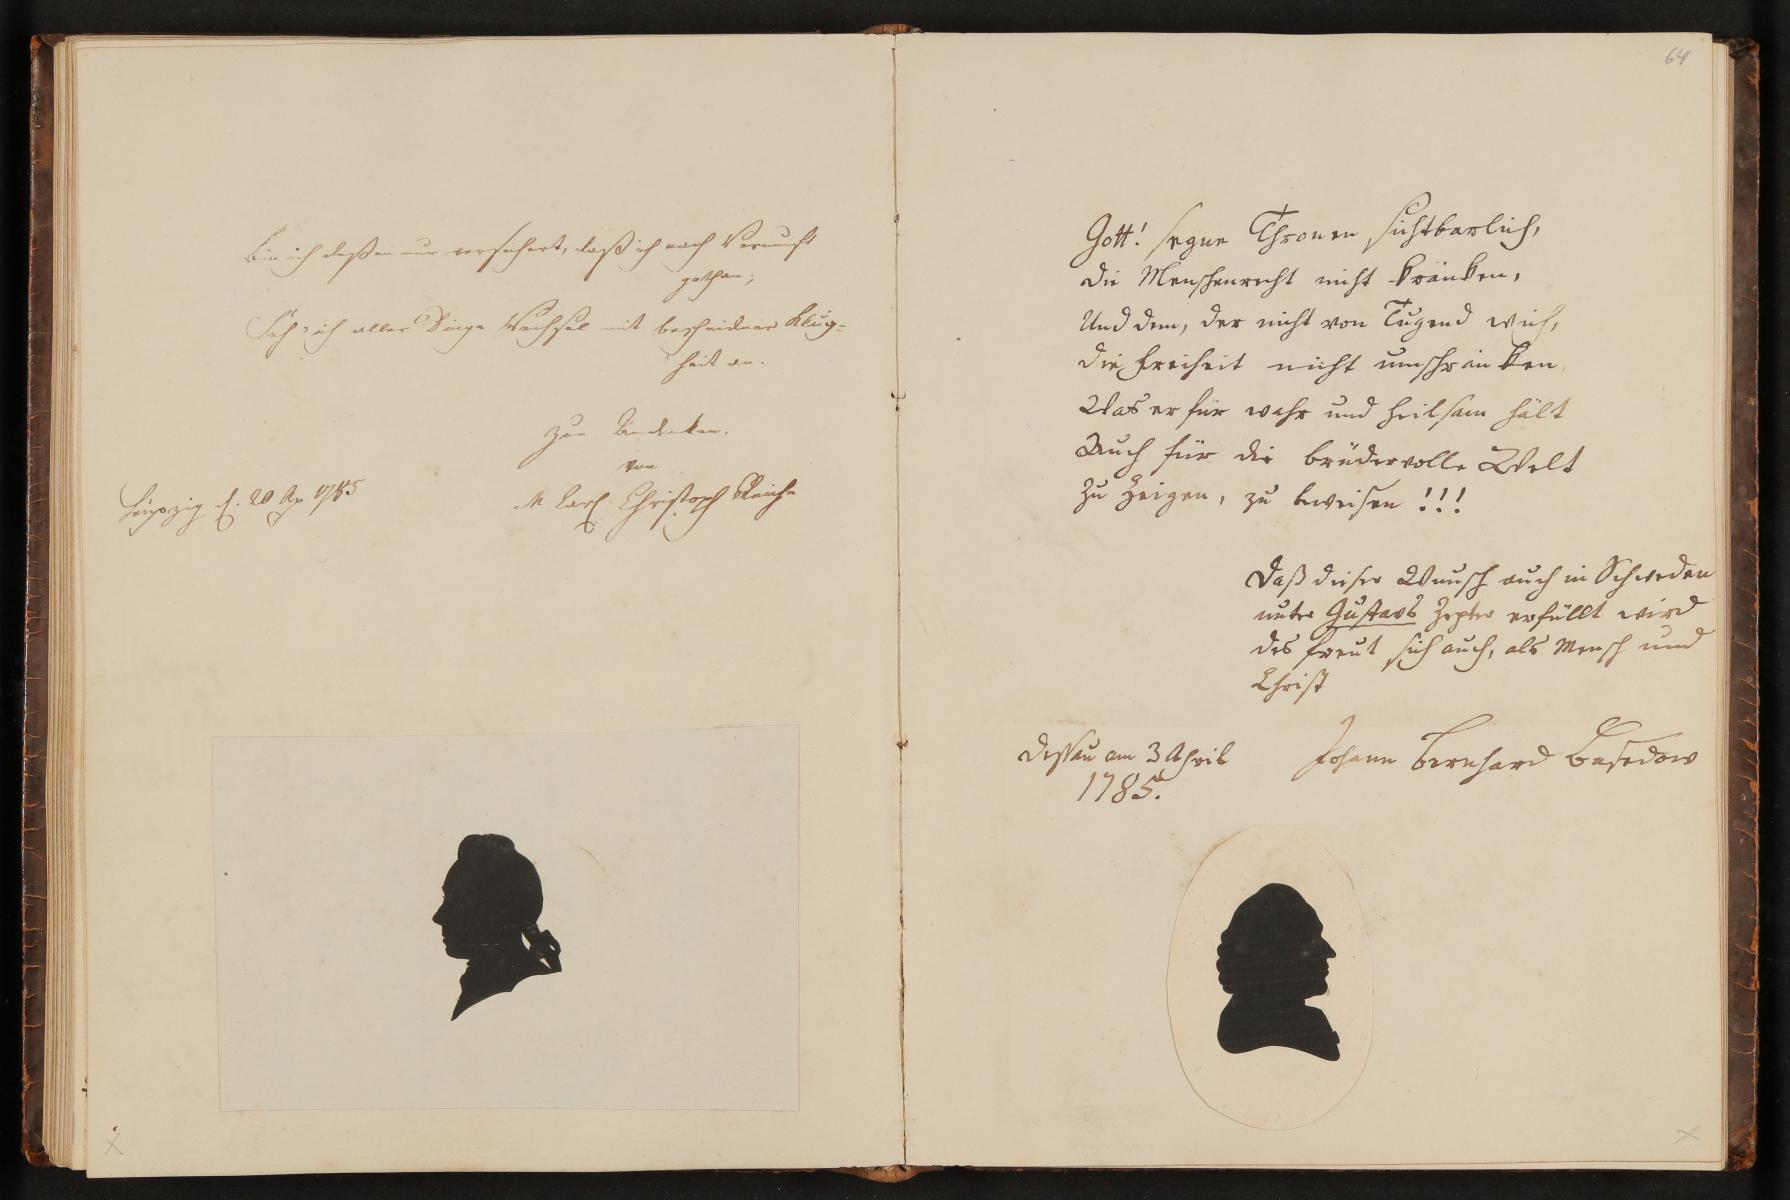 Bin ich deßen nur versichert, daß ich nach Vernunft
gethan;
Seh' ich aller Dinge Wechsel mit bescheidner Klug=
heit an.
Zum Andenken.
von
Leipzig d. 20 Ap 1785
M Carl Christoph Reiche
64
Gott! segne Thronen sichtbarlich,
die Menschenrecht nicht kränken,
Und dem, der nicht von Tugend wich,
die Freiheit nicht umschränken
Was er für wahr und heilsam hält
Auch für die brüdervolle Welt
Zu zeigen, zu beweisen!!!
Daß dieser Wunsch auch in Schweden
unter Gustavs Zepter erfüllt wird
des freut sich auch, als Mensch und
Christ
Dessau am 3 April
1785.
Johann Bernhard Basedow